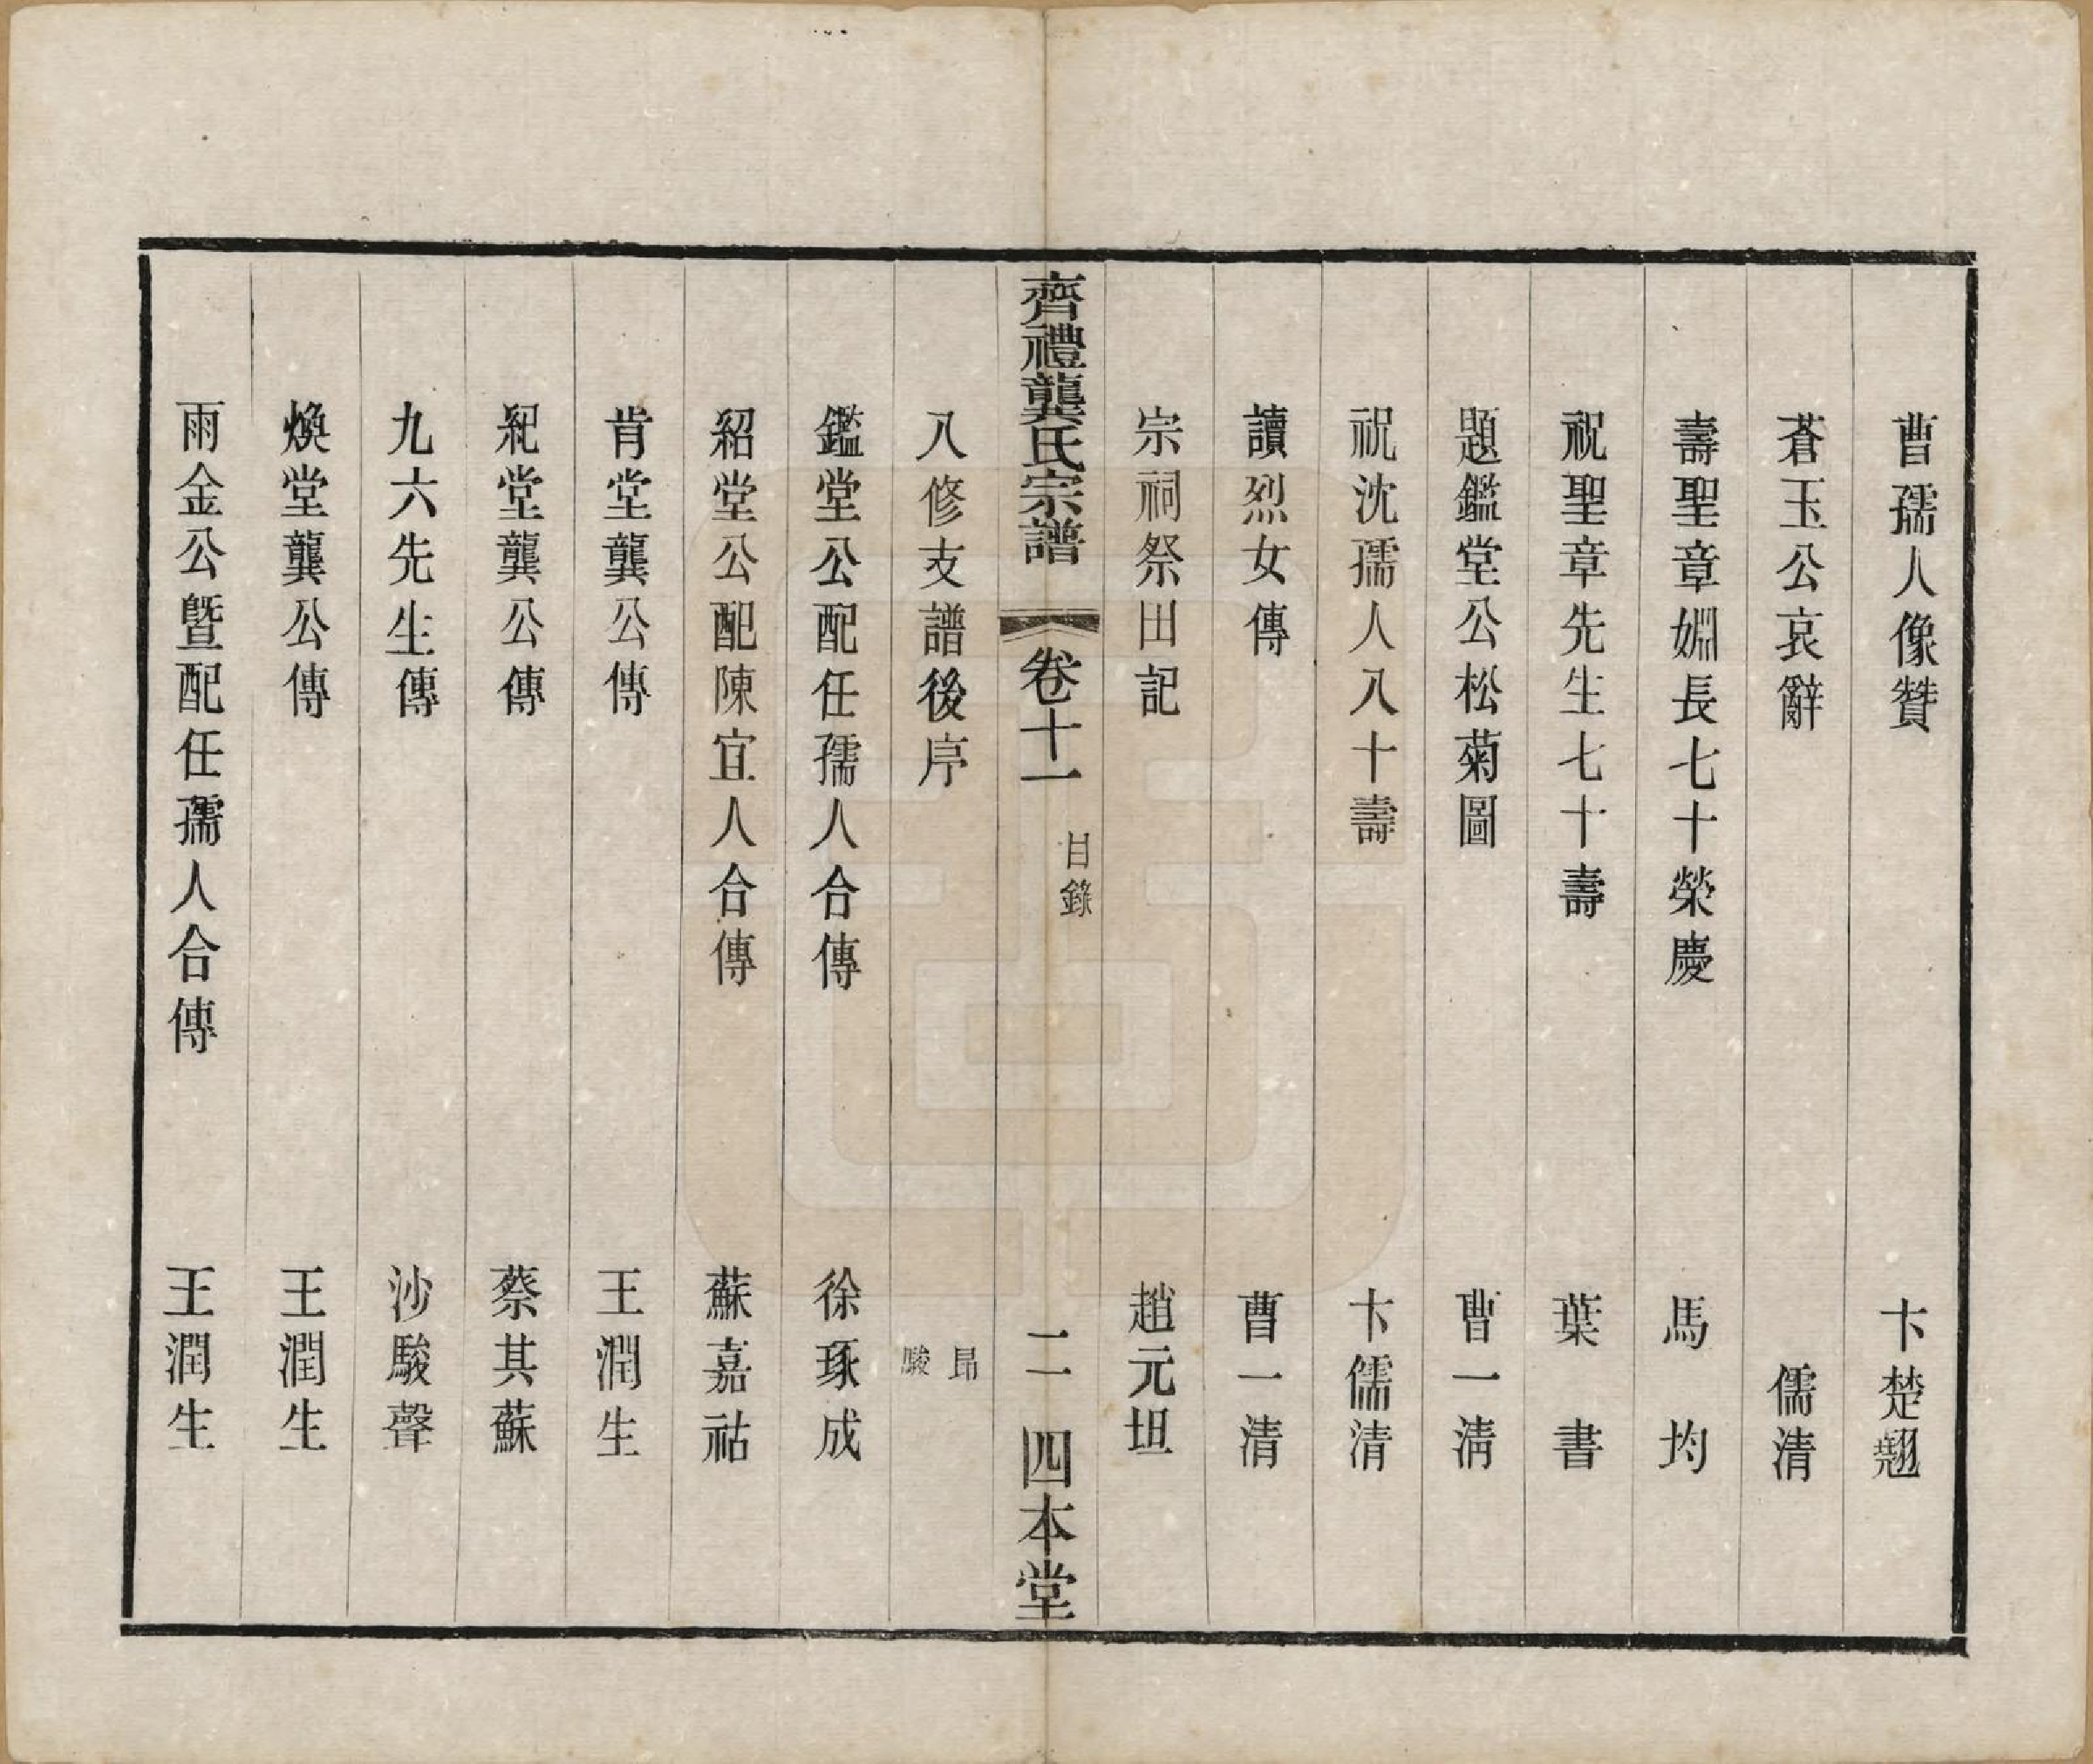 曹孺人像贊　卞楚翹
蒼玉公哀辭　儒清
壽聖章姻長七十榮慶　馬均
祝聖章先生七十壽　葉書
題鑑堂公松菊圖　曹一清
祝沈孺人八十壽　卞儒清
讀烈女傳　曹一清
宗祠祭田記　趙元坦
齊禮龔氏宗譜　卷十一　目錄　二　四本堂
八修支譜後序　昂　駿
鑑堂公配任孺人合傳　徐琢成
紹堂公配陳宜人合傳　蘇嘉祜
肯堂龔公傳　王潤生
紀堂龔公傳　蔡其蘇
九六先生傳　沙駿聲
煥堂龔公傳　王潤生
雨金公暨配任孺人合傳　王潤生